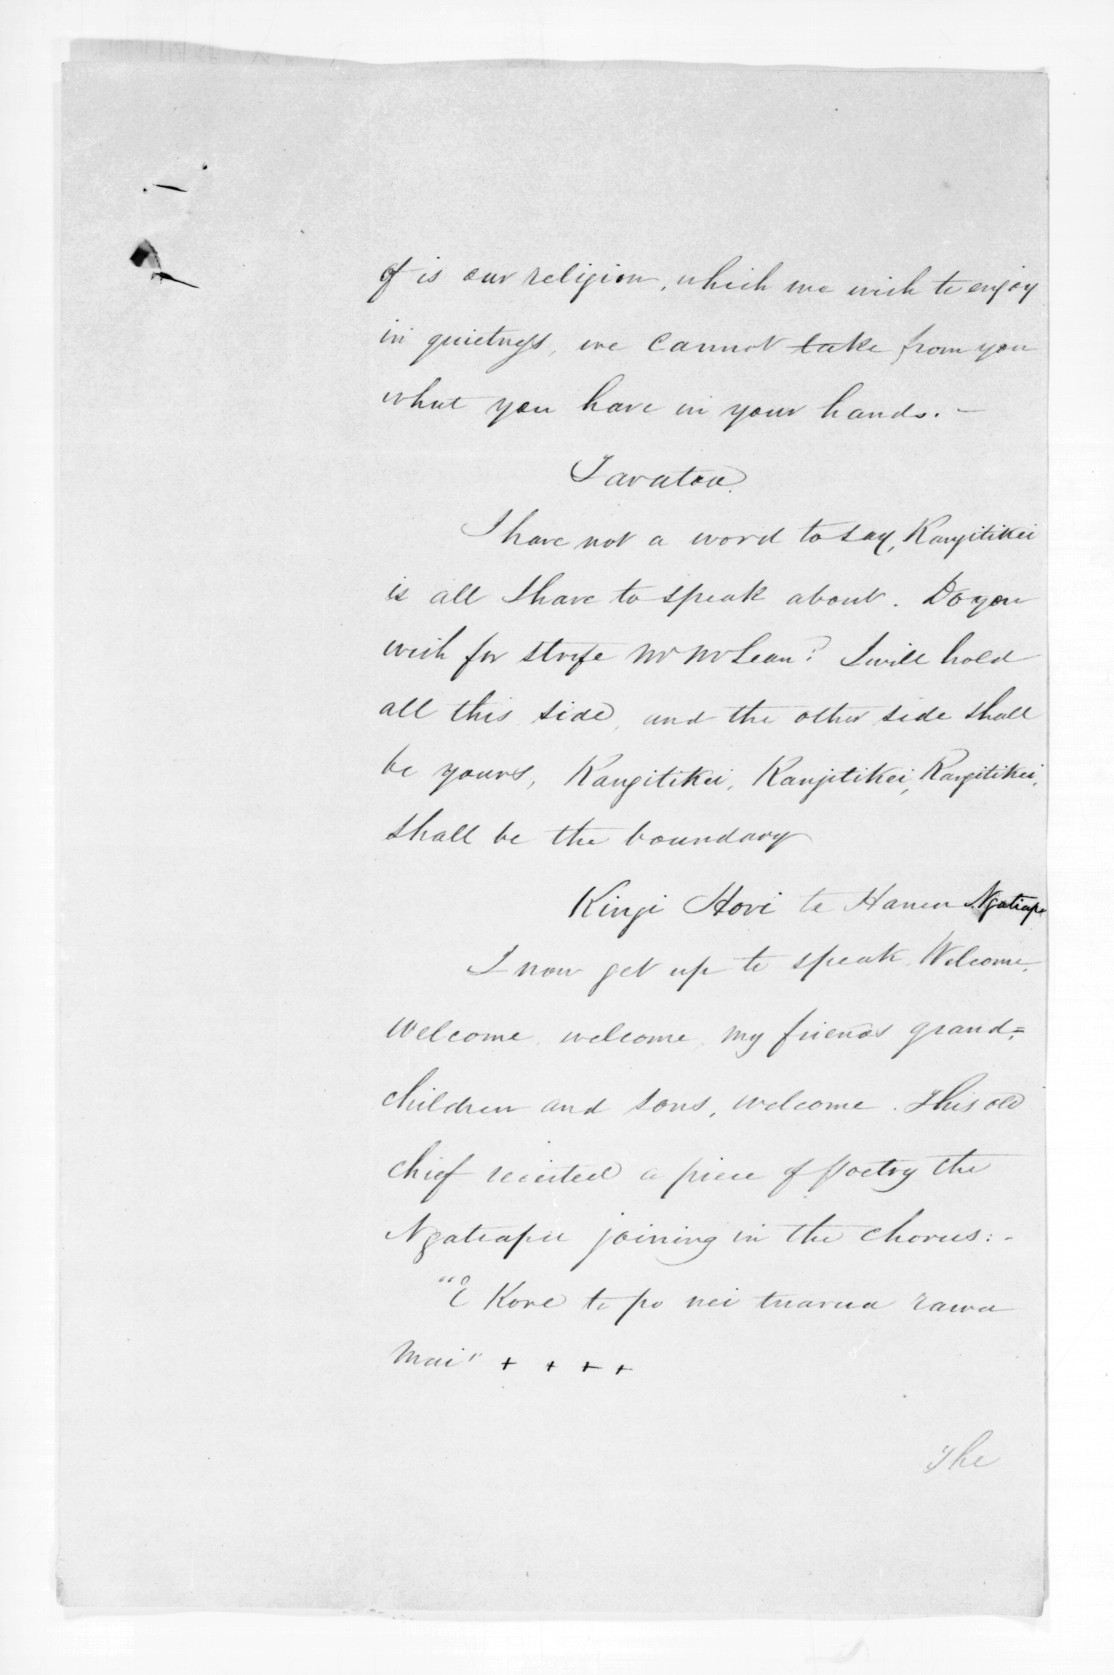 of is our religion, which we wish to enjoy
in quietness, we cannot take from you
what you have in your hands. -
Taratoa.
I have not a word to say, Rangitikei
is all I have to speak about. Do you
wish for strife Mr McLean? I will hold
all this side, and the other side shall
be yours, Rangitikei, Rangitikei, Rangitikei,
shall be the boundary
Kingi Hori te Hanea Ngatiapa
I now get up to speak. Welcome,
welcome, welcome, my friends grand=
children and sons, welcome. This old
chief recited a piece of poetry the
Ngatiapa joining in the chorus: -
"E Kore te po nei tuarua rawa
Mai" + + + +
The